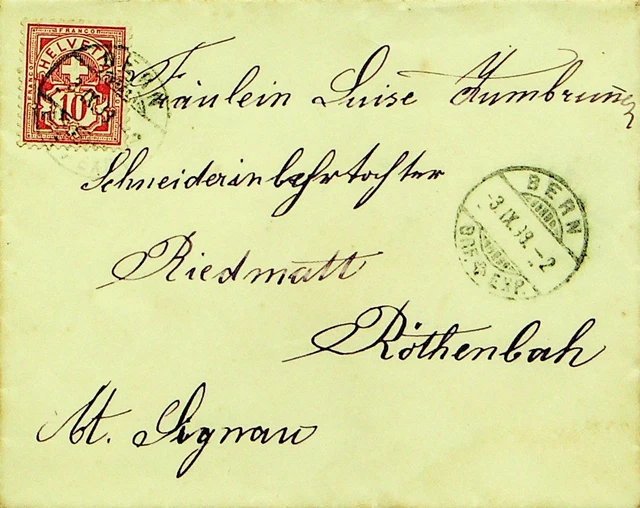 FRANCO
HELVETIA
10
Fräulein Luise Zumbrunn
Schneiderinlehrtochter
Riedmatt
Röthenbah
At. Signau
BERN
-3.IX.99.-2
BRF. EXP.